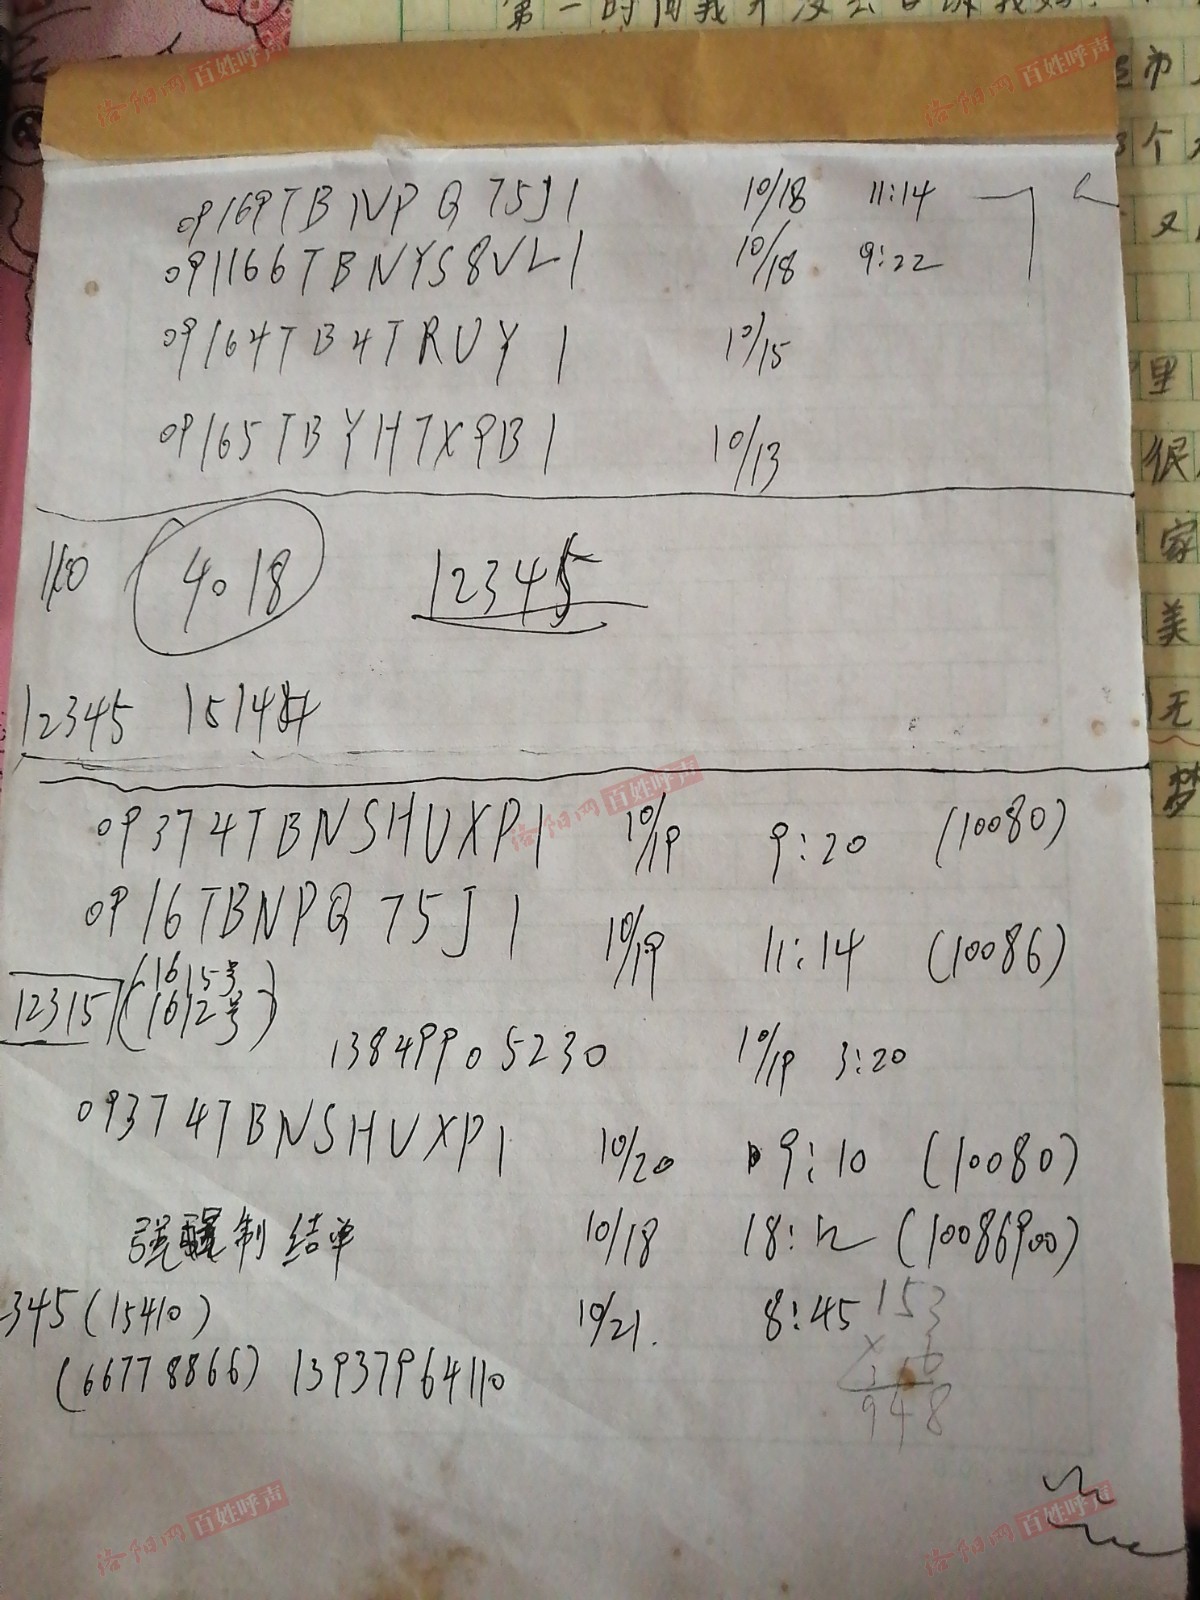 第一时间我
洛阳网 百姓呼声
洛阳网 百姓呼声
市
个
09169TBNPQ75J1 10/18 11:14
091166TBNYS8VL1 10/18 9:22
又
09164TB4TRUY1 10/15
里
09165TBYH7X9B1 10/13
很
家
4018 12345
美
12345 1514
无
梦
洛阳网 百姓呼声
09374TBNSHUXP1 10/19 9:20 (10080)
0916TBNPQ75J1 10/19 11:14 (10086)
12315 (1615号
1612号)
13849905230 10/19 3:20
09374TBNSHUXP1 10/20 9:10 (10080)
强制结单 10/18 18:12 (10086900)
345 (15410) 10/21. 8:45
153
×6
948
(66778866) 13937964110
洛阳网 百姓呼声
洛阳网 百姓呼声